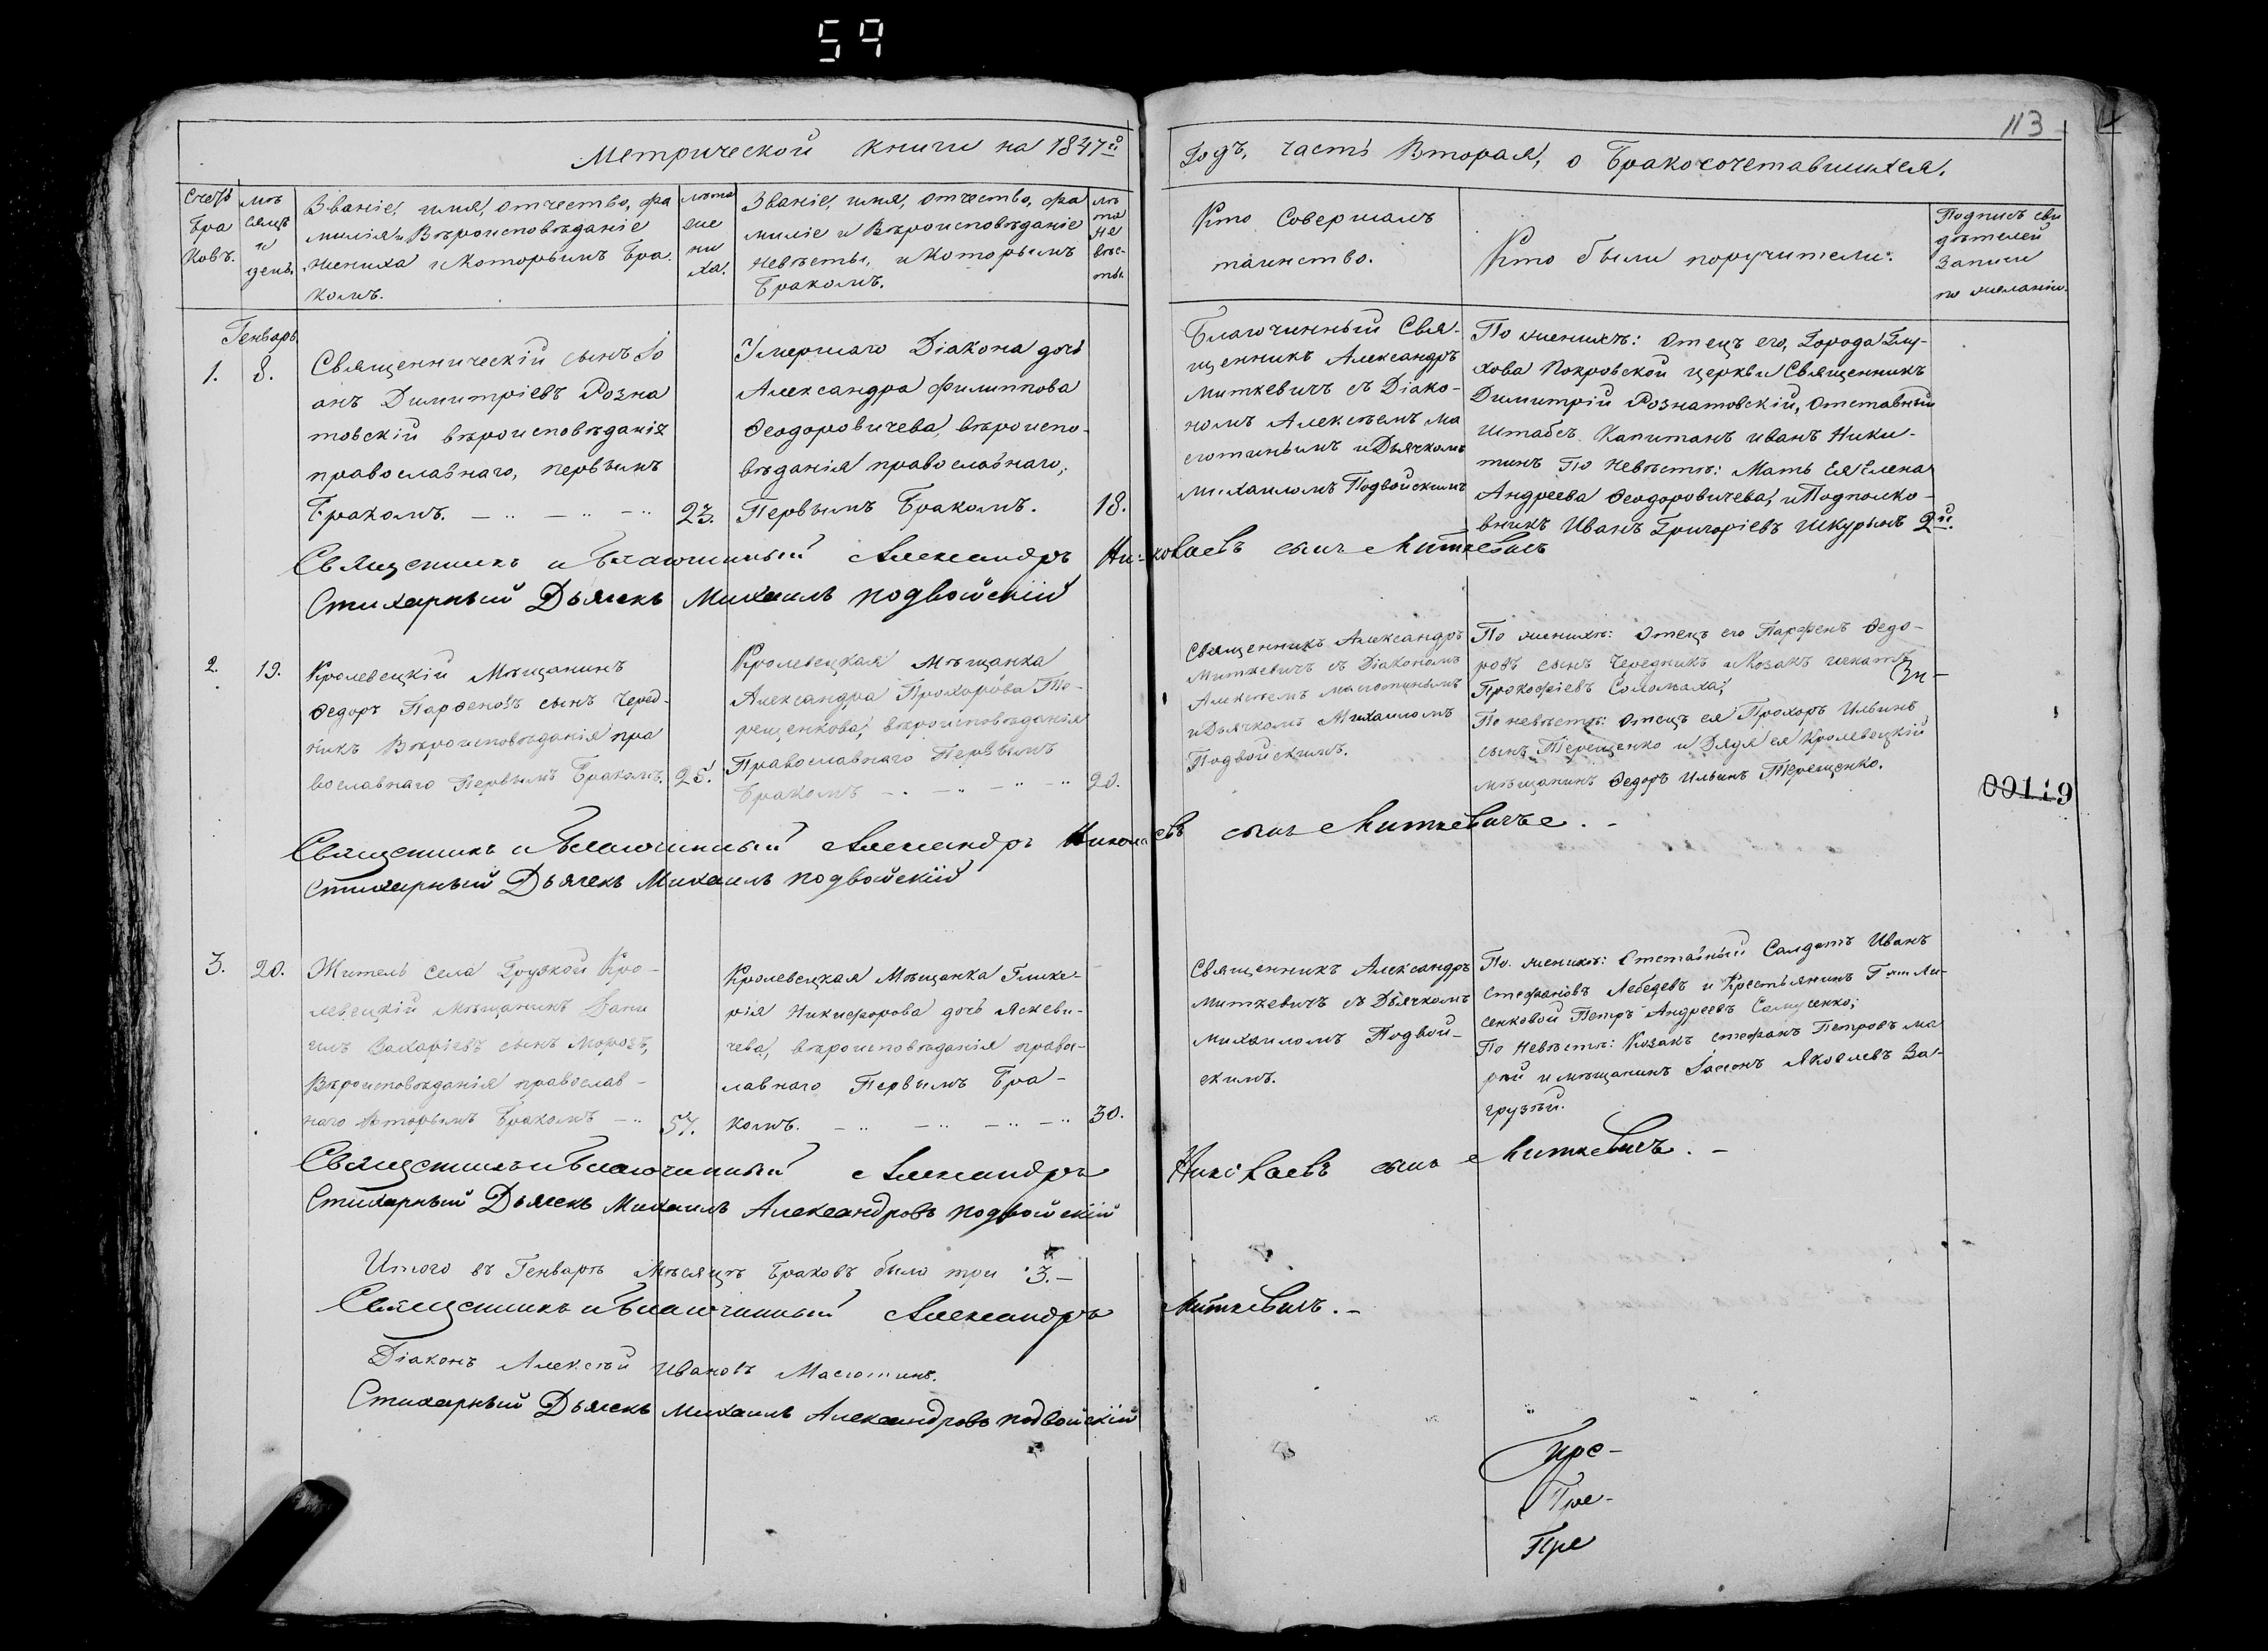 59
113
Метрической книги на 1847й
Годъ, часть Вторая, о Бракосочетавшихся.
Счетъ
Бра
ковъ.
мѣ
сяцъ
и
день.
Званіе, имя, отчество, фа
милія и Вѣроисповѣданіе
жениха и которымъ Бра
комъ.
лѣта
же
ни
ха.
Званіе, имя, отчество, фа
миліе и Вѣроисповѣданіе
невѣсты, и которымъ
Бракомъ.
лѣ
та
не
вѣс-
ты.
Кто Совершалъ
таинство.
Кто были поручители.
Подпись сви
дѣтелей
Записи
по желанію.
Генварь
1. 8.
Священническій сынъ Іо
анъ Димитріевъ Розна
товскій вѣроисповѣданія
православнаго, первымъ
Бракомъ. 23.
Умершаго Діакона дочь
Александра Филиппова
Ѳеодоровичева, вѣроиспо-
вѣданія православнаго,
Первымъ Бракомъ. 18.
Благочинный Свя-
щенникъ Александръ
Миткевичъ съ Діако-
номъ Алексѣемъ Ма
сютинымъ и Дьячкомъ
Михаиломъ Подвойскимъ
По женихѣ: Отецъ его, Города Глу-
хова Покровской церкви Священникъ
Димитрій Рознатовскій, Отставный
Штабсъ Капитанъ Иванъ Ники-
тинъ По Невѣстѣ: Мать Ея Елена
Андреева Ѳеодоровичева, и Подполко-
вникъ Иванъ Григоріевъ Шкуринъ 2й.
Священникъ и Благочинный Александръ Николаевъ сынъ Миткевичъ
Стихарный Дьячекъ Михаилъ Подвойскій
2. 19.
Кролевецкій Мѣщанинъ
Ѳедоръ Парѳеновъ сынъ Черед-
никъ Вѣроисповѣданія пра
вославнаго Первымъ Бракомъ. 25.
Кролевецкая Мѣщанка
Александра Прохорова Те-
рещенкова, вѣроисповѣданія
Православнаго Первымъ
Бракомъ 20.
Священникъ Александръ
Миткевичъ съ Діакономъ
Алексѣемъ Масютинымъ
и Дьячкомъ Михаиломъ
Подвойскимъ.
По женихѣ: Отецъ его Парфенъ Ѳедо-
ровъ сынъ Чередникъ и Козакъ Игнатъ
Прокофіевъ Соломаха,
По невѣстѣ: Отецъ ея Прохоръ Ильинъ
сынъ Терещенко и Дядя ея Кролевецкій
мѣщанинъ Ѳедоръ Ильинъ Терещенко.
00119
Священникъ и Благочинный Александръ Николаевъ сынъ Миткевичъ.
Стихарный Дьячекъ Михаилъ Подвойскій
3. 20.
Житель села Грузкой Кро-
левецкій Мѣщанинъ Дани
илъ Захаріевъ сынъ Морозъ,
Вѣроисповѣданія православ-
наго Вторымъ Бракомъ 57.
Кролевецкая Мѣщанка Глике-
рія Никифорова дочь Яскеви-
чева, вѣроисповѣданія правос-
лавнаго Первымъ Бра-
комъ. 30.
Священникъ Александръ
Миткевичъ съ Дьячкомъ
Михаиломъ Подвой-
скимъ.
По женихѣ: Отставный Салдатъ Иванъ
Стефановъ Лебедевъ и Крестьянинъ Г Ли-
сенковой Петръ Андреевъ Самусенко;
По Невѣстѣ: Козакъ Стефанъ Петровъ Ма
рій и мѣщанинъ Іасонъ Яковлевъ За-
грузый.
Священникъ и Благочинный Александръ Николаевъ сынъ Миткевичъ.
Стихарный Дьячекъ Михаилъ Александровъ Подвойскій
Итого въ Генварѣ Мѣсяцѣ Браковъ было три 3.
Священникъ и Благочинный Александръ Миткевичъ.
Діаконъ Алексѣй Ивановъ Масютинъ.
Стихарный Дьячекъ Михаилъ Александровъ Подвойскій
Пре-
Пре-
Пре